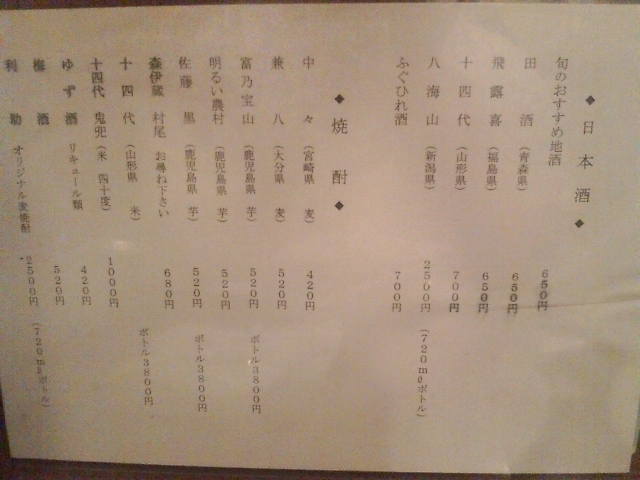 ◆ 日本酒 ◆
旬のおすすめ地酒 650円
田酒 (青森県) 650円
飛露喜 (福島県) 650円
十四代 (山形県) 700円
八海山 (新潟県) 2500円 (720mℓボトル)
ふぐひれ酒 700円
◆ 焼酎 ◆
中々 (宮崎県 麦) 420円
兼八 (大分県 麦) 520円
富乃宝山 (鹿児島県 芋) 520円 ボトル3800円
明るい農村 (鹿児島県 芋) 520円
佐藤 黒 (鹿児島県 芋) 520円 ボトル3800円
森伊蔵 村尾 お尋ね下さい 680円
十四代 (山形県 米) ボトル3800円
十四代 鬼兜 (米 四十度) 1000円
ゆず酒 リキュール類 420円
梅酒 520円
利助 オリジナル麦焼酎 2500円 (720mℓボトル)